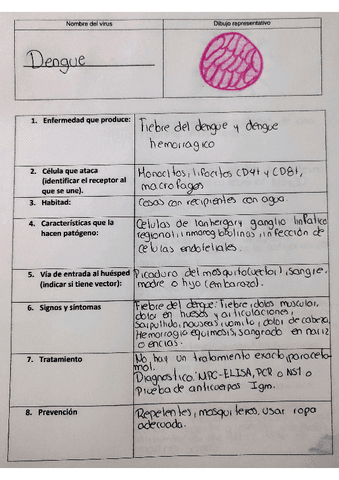 Nombre del virus
Dibujo representativo
Dengue
1. Enfermedad que produce:
Fiebre del dengue y dengue
hemorragico
2. Célula que ataca
(identificar el receptor al
que se une).
Monocitos, lifocitos CD4+ y CD8+,
macrofagos
3. Habitad:
Casas con recipientes con agua.
4. Características que la
hacen patógeno:
Celulas de lanhergary ganglio linfatico
regional, inmonoglobulinas, infección de
celulas endoteliales.
5. Vía de entrada al huésped
(indicar si tiene vector):
Picadura del mosquito(vector), sangre,
madre o hijo (embarazo).
6. Signos y síntomas
Fiebre del dengue: Fiebre, dolos muscular,
dolor en huesos y articulaciones,
sarpullido, nauseas, vomito, dolor de cabeza,
Hemorragia equimosis, sangrado en nariz
o encias.
7. Tratamiento
No hay un tratamiento exacto, paraceta-
mol.
Diagnostico: NPC-ELISA, PCR o NS1 o
Prueba de anticuerpos Igm.
8. Prevención
Repelentes, mosquiteros, usar ropa
adecuada.